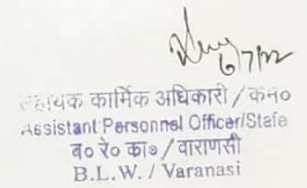 6/7/22
सहायक कार्मिक अधिकारी / कर्म०
Assistant Personnel Officer/Stafe
ब० रे० का० / वाराणसी
B.L.W. / Varanasi